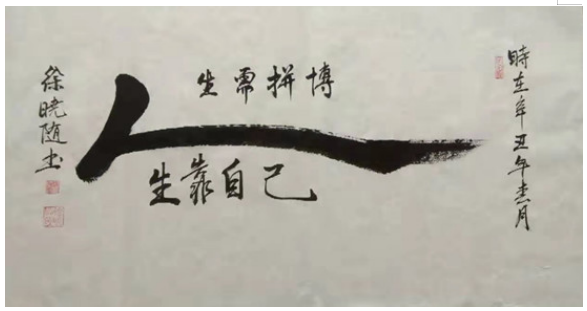 人
生需拼博
生靠自己
時在辛丑年月
徐晓随书